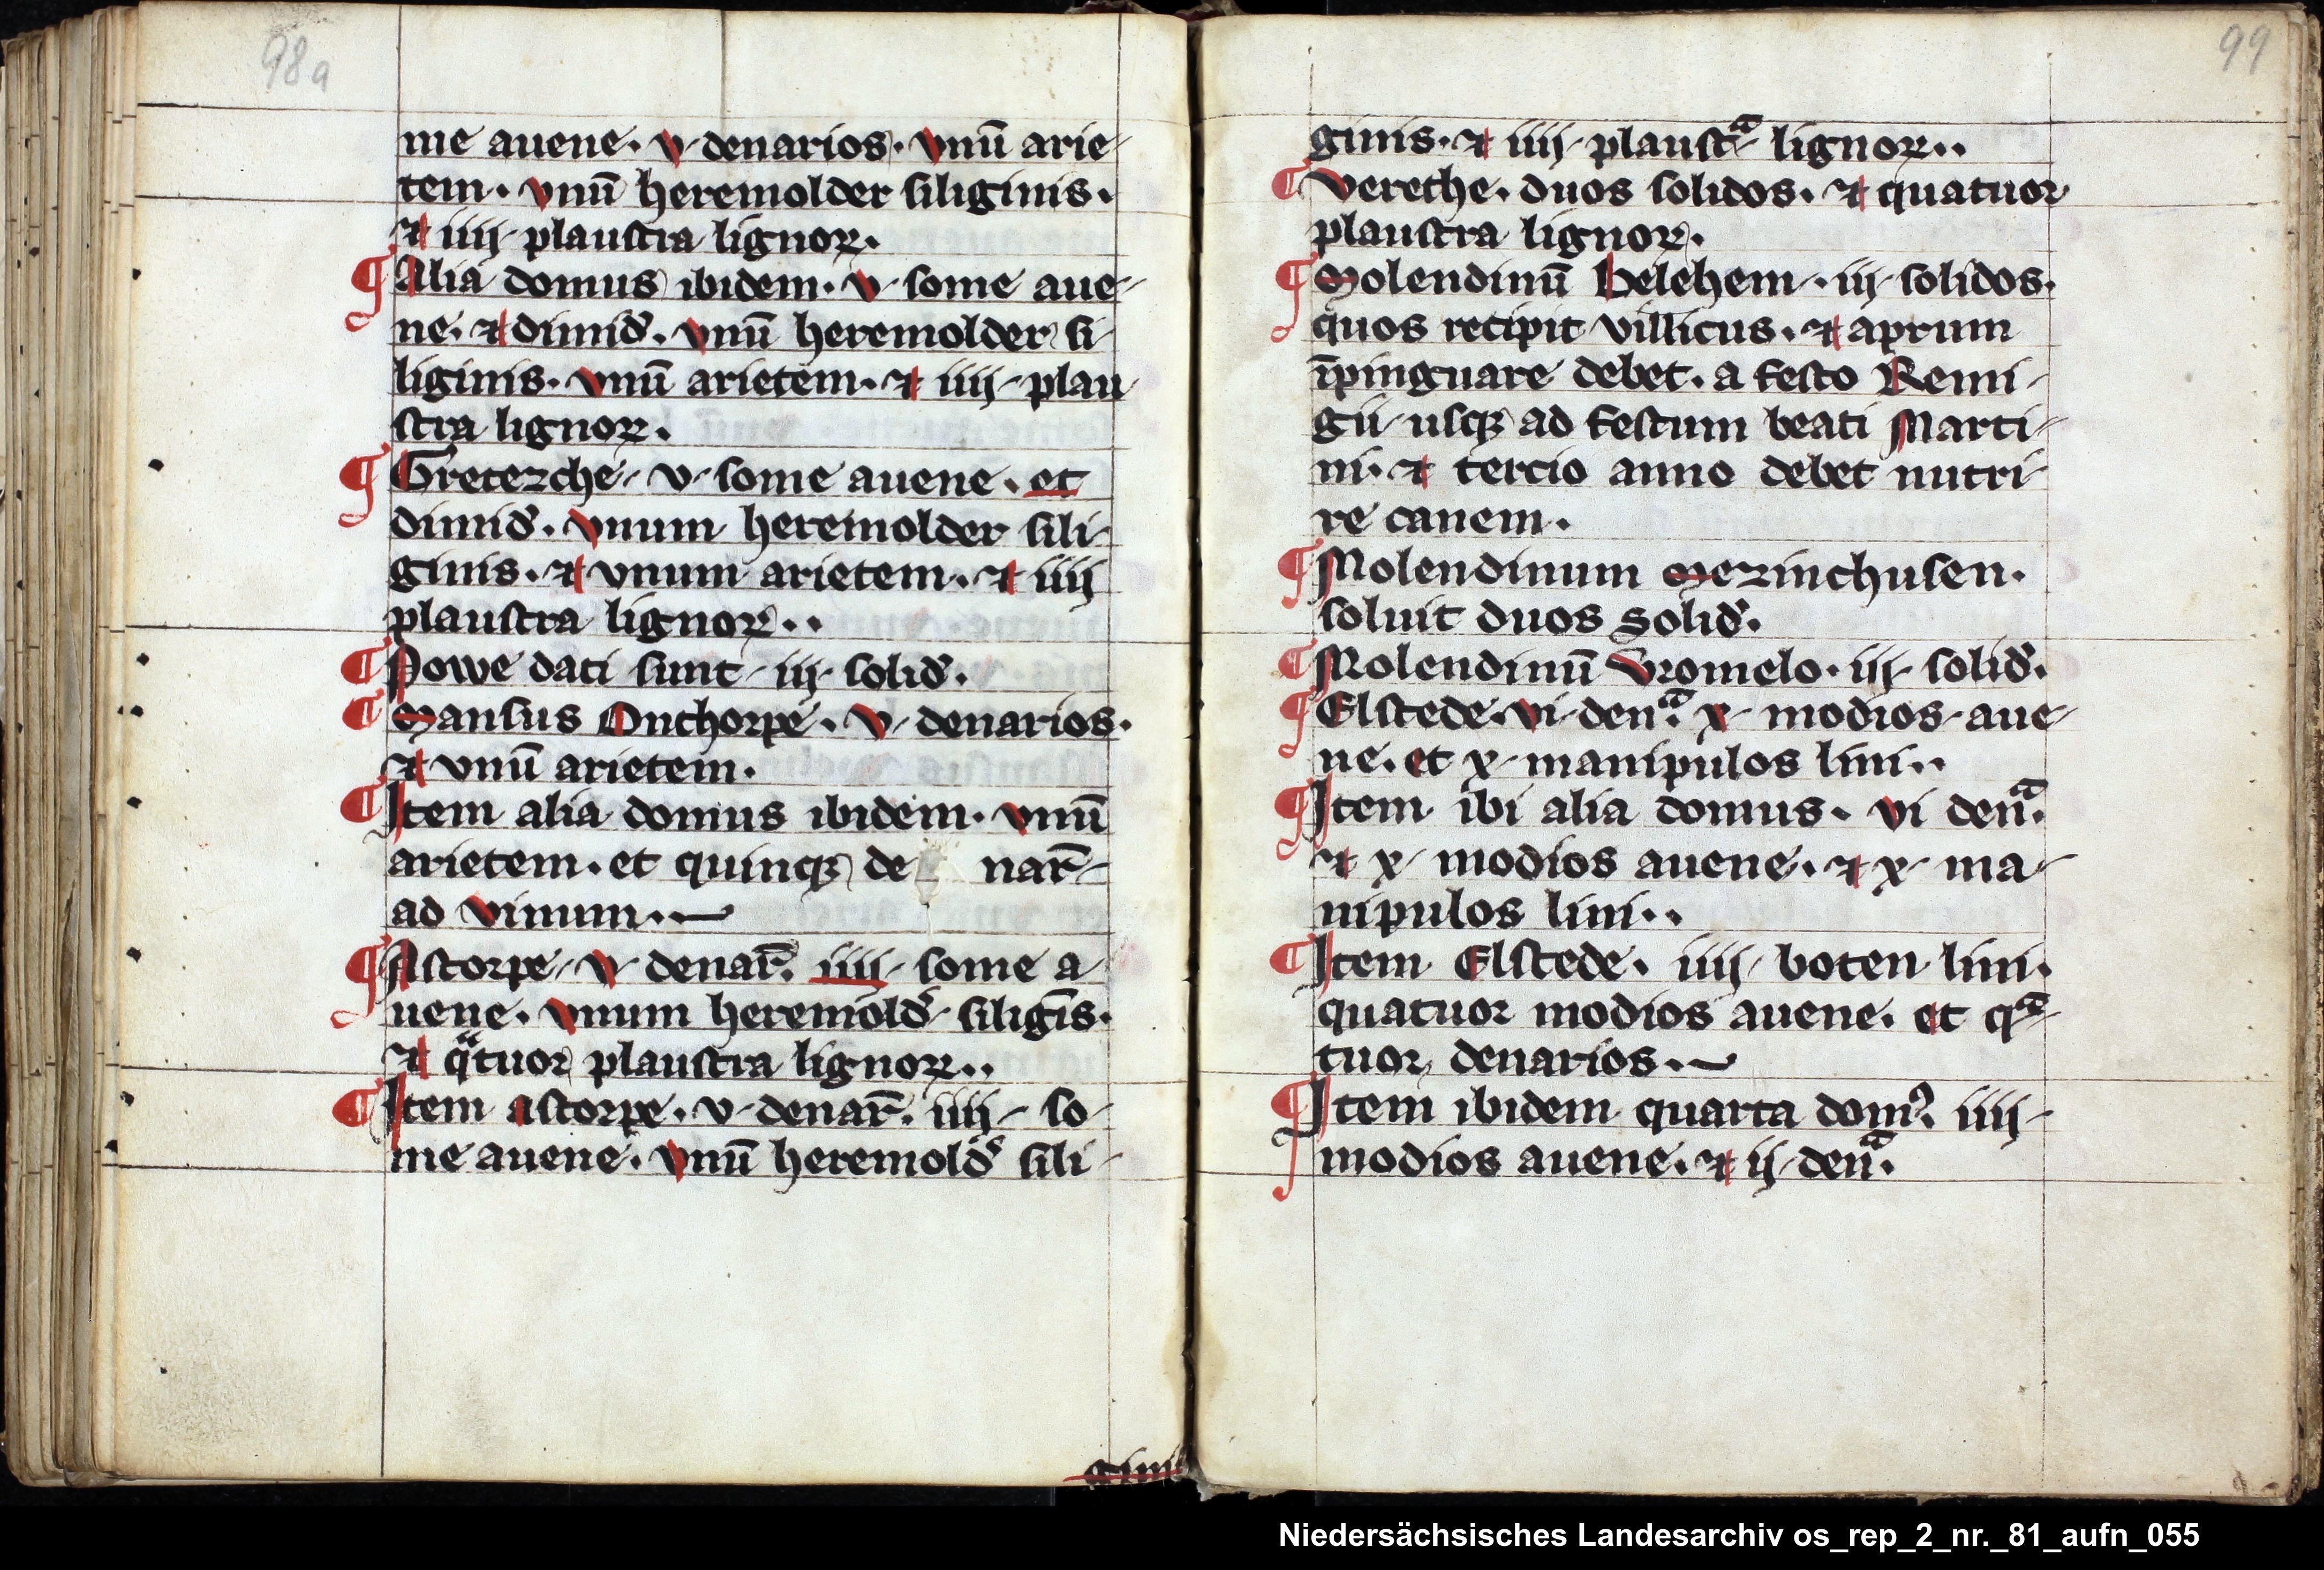 98a
me auene. v. denarios. vnū arie-
tem. vnū heremolder siliginis.
⁊ iiij. plaustra lignoꝝ.
¶ Alia domus ibidem. v. some aue-
ne. ⁊ dimid̛. vnū heremolder si-
liginis. vnū arietem. ⁊ iiij. plau
stra lignoꝝ.
¶ Gretezche. v. some auene. et
dimid̛. vnum heremolder sili-
ginis. ⁊ vnum arietem. ⁊ iiij
plaustra lignoꝝ..
¶ Powe dati sunt. iij. solid̛.
¶ Mansus Onchorpe. v. denarios.
⁊ vnū arietem.
¶ Item alia domus ibidem. vnū
arietem. et quinqꝫ de nar̄-
ad vinum.
¶ Astorpe. v. denar̄. iiij. some a-
uene. vnum heremold̛ siligīs.
⁊ qͣtuor plaustra lignoꝝ..
¶ Item astorpe. v. denar̄. iiij. so-
me auene. vnū heremold̛ sili-
gini
99
ginis. ⁊ iiij. plaustͣ lignoꝝ..
¶ Verethe. duos solidos. ⁊ quatuor
plaustra lignoꝝ.
¶ Molendinū Helehem. iij. solidos.
quos recipit villicus. ⁊ aprum
īpinguare debet. a festo Remi-
gii. usqꝫ ad festum beati Marti-
ni. ⁊ tercio anno debet nutri-
re canem.
¶ Molendinum Mezinchusen.
soluit duos solid̛.
¶ Molendinū Vromelo. iij. solid̛.
¶ Elstede. vi. denͣ. x. modios. aue-
ne. et x. manipulos lini..
¶ Item ibi alia domus. vi denͣ.
⁊ x. modios auene. ⁊ x. ma-
nipulos lini..
¶ Item Elstede. iiij. boten lini.
quatuor modios auene. et qͣ-
tuor denarios.
¶ Item ibidem quarta domꝰ. iiij.
modios auene. ⁊ ij. denͣ.
Niedersächsisches Landesarchiv os_rep_2_nr._81_aufn_055